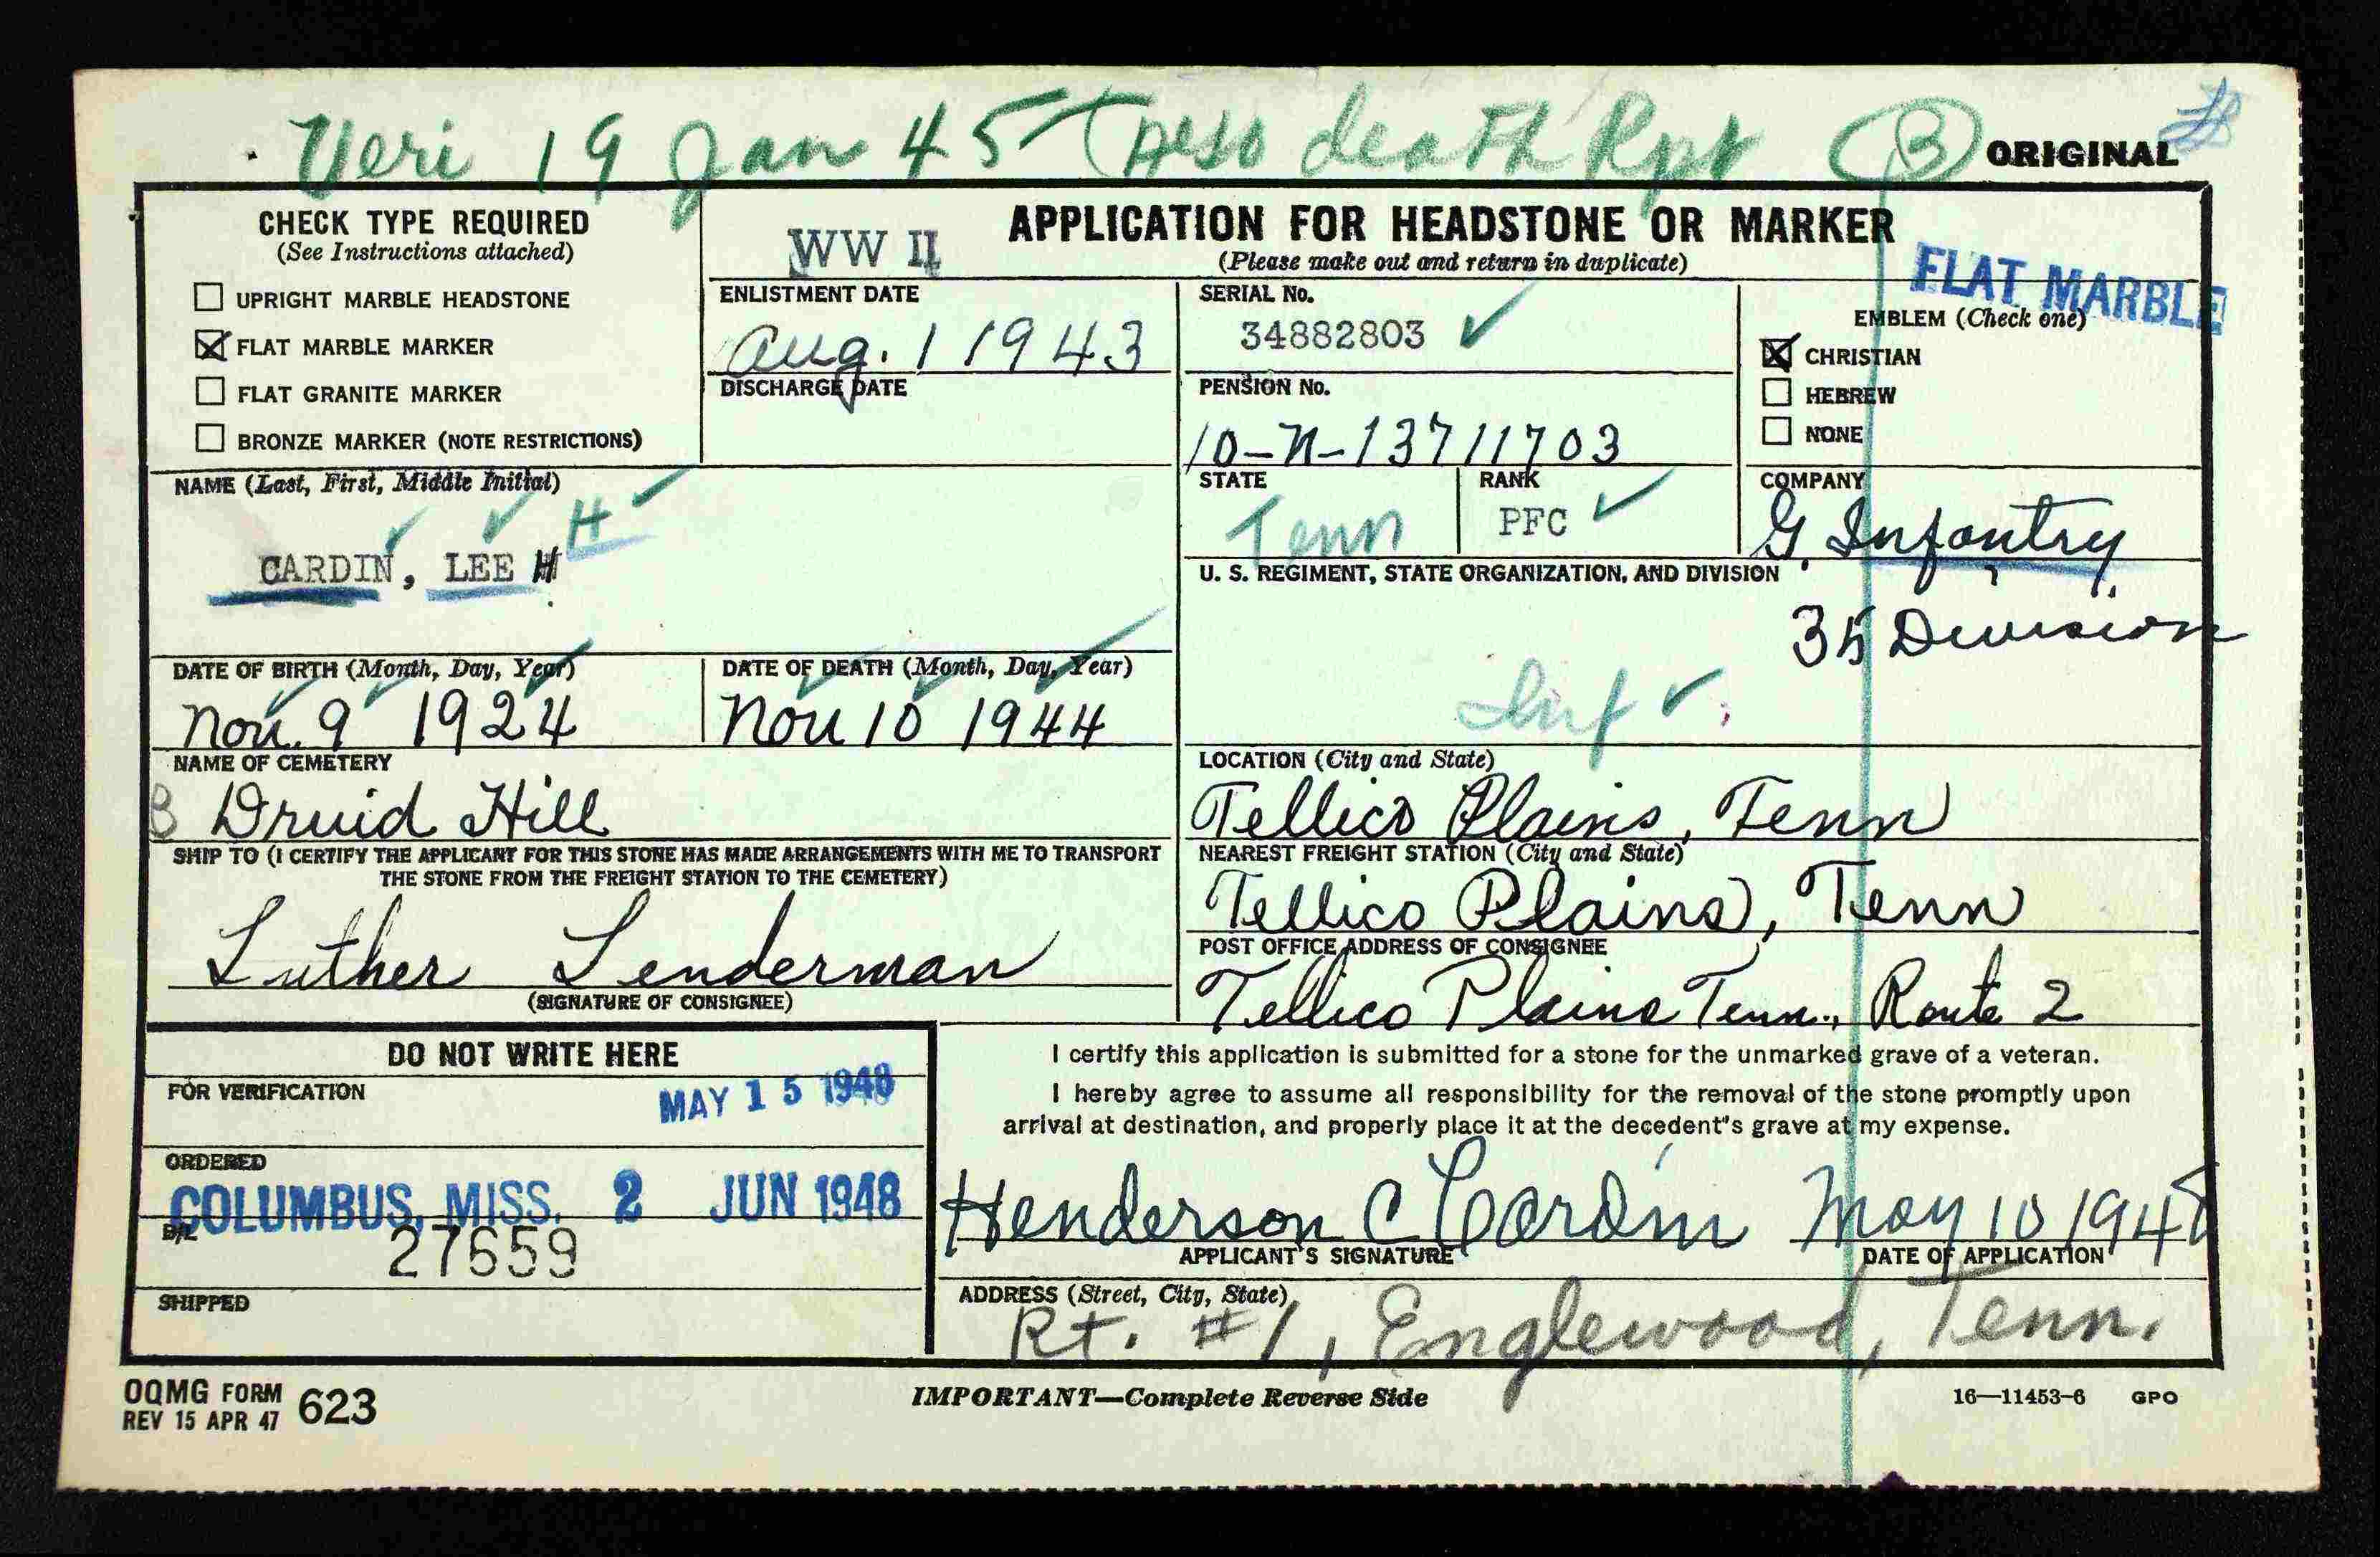 Veri 19 Jan 45 death Rpt B ORIGINAL
CHECK TYPE REQUIRED
(See Instructions attached)
UPRIGHT MARBLE HEADSTONE
FLAT MARBLE MARKER
FLAT GRANITE MARKER
BRONZE MARKER (NOTE RESTRICTIONS)
WW II
APPLICATION FOR HEADSTONE OR MARKER
(Please make out and return in duplicate)
FLAT MARBLE
ENLISTMENT DATE
Aug. 1 1943
DISCHARGE DATE
SERIAL No.
34882803
PENSION No.
10-N-13711703
EMBLEM (Check one)
CHRISTIAN
HEBREW
NONE
NAME (Last, First, Middle Initial)
CARDIN, LEE H H
STATE
Tenn
RANK
PFC
COMPANY
G. Infantry
U. S. REGIMENT, STATE ORGANIZATION, AND DIVISION
35 Division
Inf
DATE OF BIRTH (Month, Day, Year)
Nov. 9 1924
DATE OF DEATH (Month, Day, Year)
Nov 10 1944
NAME OF CEMETERY
B Druid Hill
LOCATION (City and State)
Tellico Plains, Tenn
SHIP TO (I CERTIFY THE APPLICANT FOR THIS STONE HAS MADE ARRANGEMENTS WITH ME TO TRANSPORT
THE STONE FROM THE FREIGHT STATION TO THE CEMETERY)
Luther Lenderman
(SIGNATURE OF CONSIGNEE)
NEAREST FREIGHT STATION (City and State)
Tellico Plains, Tenn
POST OFFICE ADDRESS OF CONSIGNEE
Tellico Plains Tenn., Route 2
DO NOT WRITE HERE
FOR VERIFICATION
MAY 15 1948
ORDERED
COLUMBUS, MISS. 2 JUN 1948
B/L
27659
SHIPPED
I certify this application is submitted for a stone for the unmarked grave of a veteran.
I hereby agree to assume all responsibility for the removal of the stone promptly upon
arrival at destination, and properly place it at the decedent's grave at my expense.
Henderson C Cardin May 10 1948
APPLICANT'S SIGNATURE
DATE OF APPLICATION
ADDRESS (Street, City, State)
Rt. #1, Englewood, Tenn.
OQMG FORM 623
REV 15 APR 47
IMPORTANT—Complete Reverse Side
16—11453-6 GPO